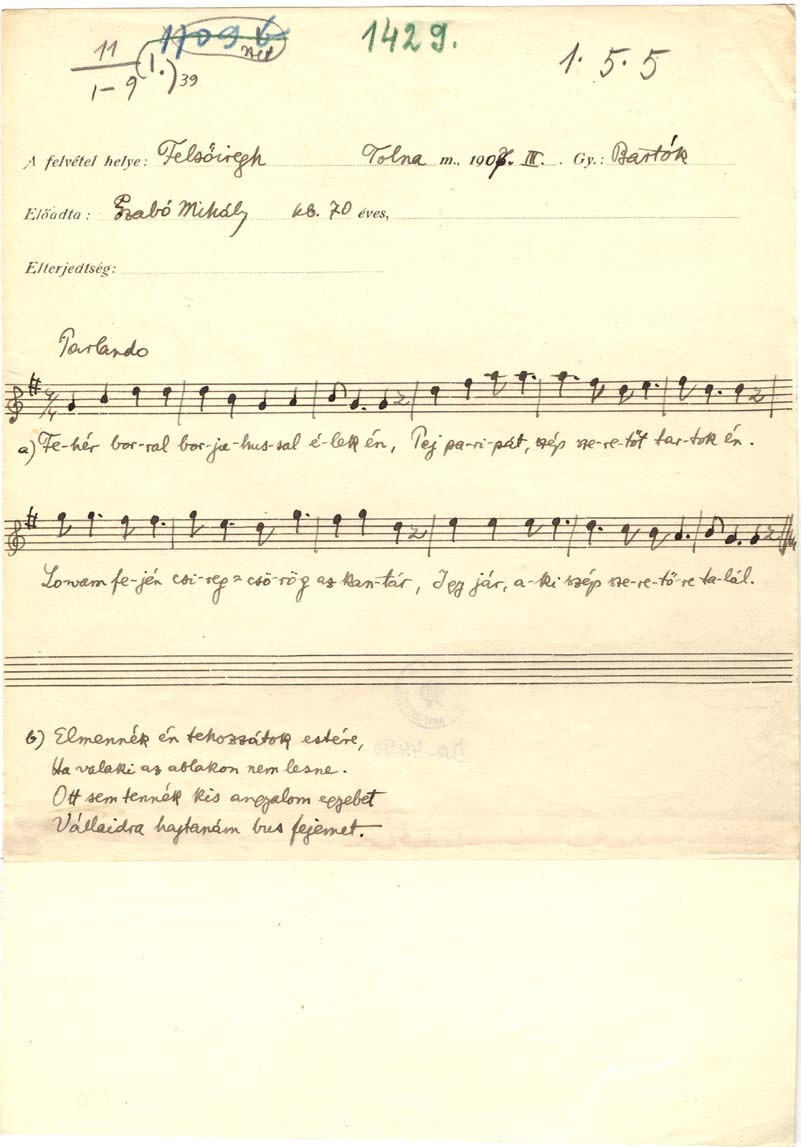 1109 b
1429.
1. 5. 5
11
1–9
(I.)
39
A felvétel helye: Felsőiregh Tolna m., 1907. III. Gy.: Bartók
Előadta: Szabó Mihály kb. 70 éves,
Elterjedtség:
Parlando
a) Fe-hér bor-ral bor-ja-hus-sal é-lek én, Pej pa-ri-pát, szép sze-re-tőt tar-tok én.
Lovam fe-jén csi-reg-csö-rög az kan-tár, Igy jár, a-ki szép sze-re-tő-re ta-lál.
b) Elmennék én tehozzátok estére,
Ha valaki az ablakon nem lesne.
Ott sem tennék kis angyalom egyebet
Vállaidra hajtanám bus fejemet.